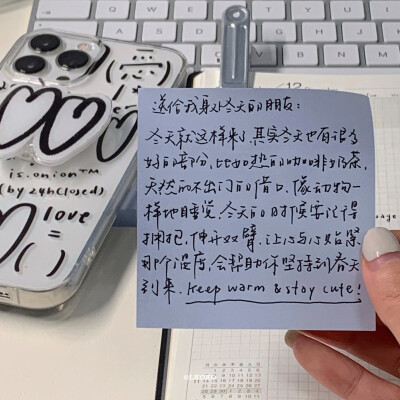 送给我身处冬天的朋友：
冬天就这样来了，其实冬天也有很多
好的部分，比如热的咖啡奶茶，
天然的不出门的借口，像动物一
样地睡觉。冬天的日打实要记得
拥抱，伸开双臂，让心与心贴紧，
那个温度，会帮助你坚持到春天
到来。keep warm & stay cute!
is.onion™
(by 24hClosed)
love
=
12